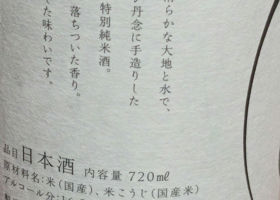 らかな大地と水で、
丹念に手造りした
特別純米酒。
落ちついた香り。
た味わいです。
品目 日本酒 内容量 720ml
原材料名:米(国産)、米こうじ(国産米)
アルコール分:16